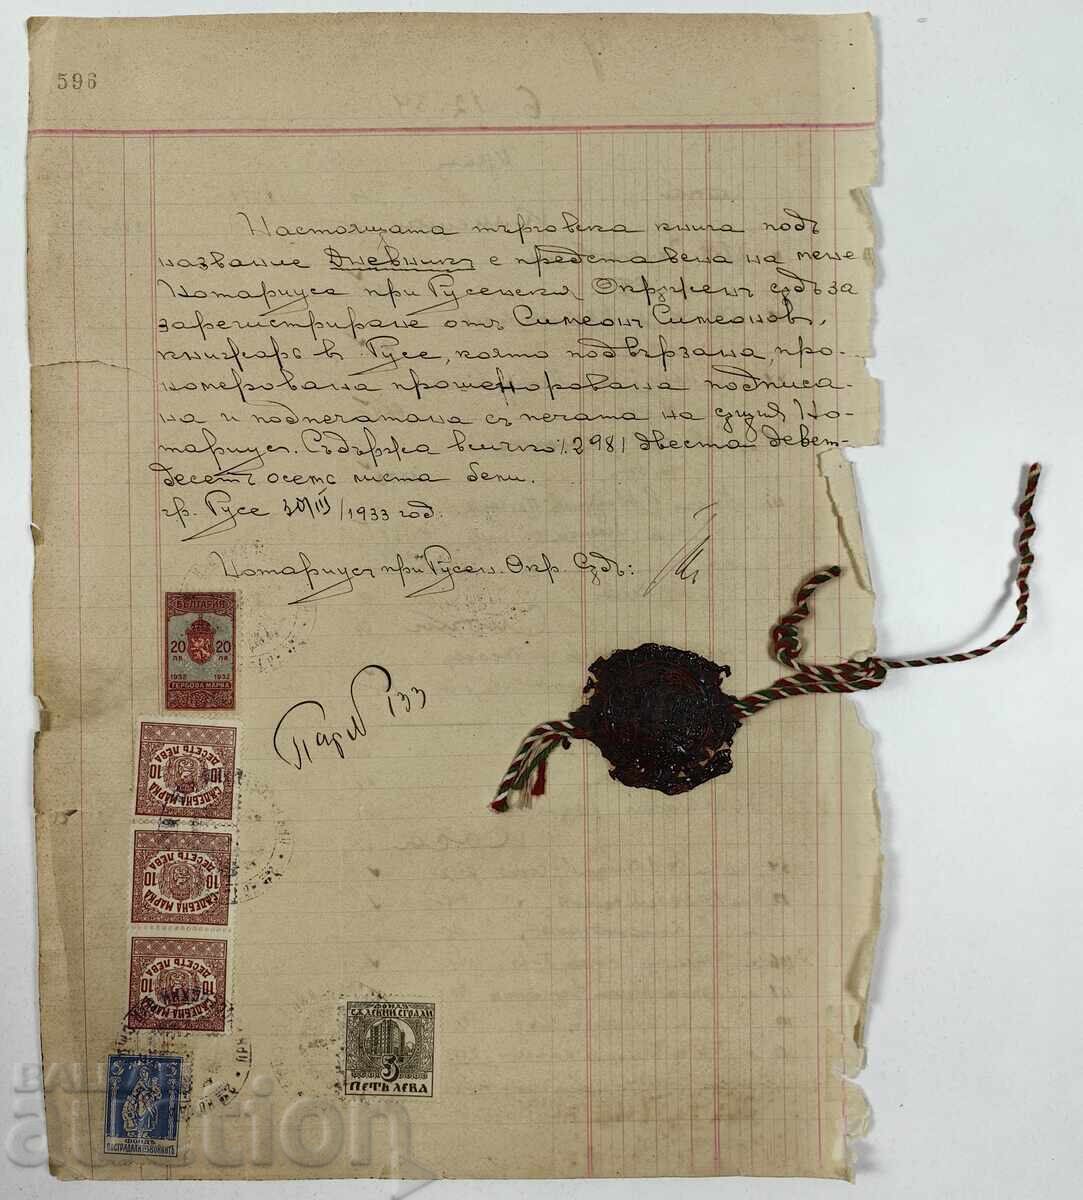 596
Настоящата търговска книга подъ
название Дневникъ е представена на мене
Нотариуса при Русенския Окрѫженъ сѫдъ за
зарегистриране отъ Симеонъ Симеоновъ,
книжарь в Русе, която подвързана, про-
номерована прошенорована подписа-
на и подпечатана съ печата на сѫщия Но-
тариусъ. Съдържа всичко /298/ двеста девет-
десеть осемь листа бели.
гр. Русе 30/III/1933 год.
Нотариусъ при Русен. Окр. Сѫдъ:
БЪЛГАРИЯ
20 20
лв лв
1932 1932
ГЕРБОВА МАРКА
133
ДЕСЕТЬ ЛЕВА
10 10
СѪДЕБНА МАРКА
ДЕСЕТЬ ЛЕВА
10 10
СѪДЕБНА МАРКА
ДЕСЕТЬ ЛЕВА
10 10
СѪДЕБНА МАРКА
ФОНДЪ
СѪДЕБНИ СГРАДИ
5
ПЕТЬ ЛЕВА
ФОНДЪ
auction